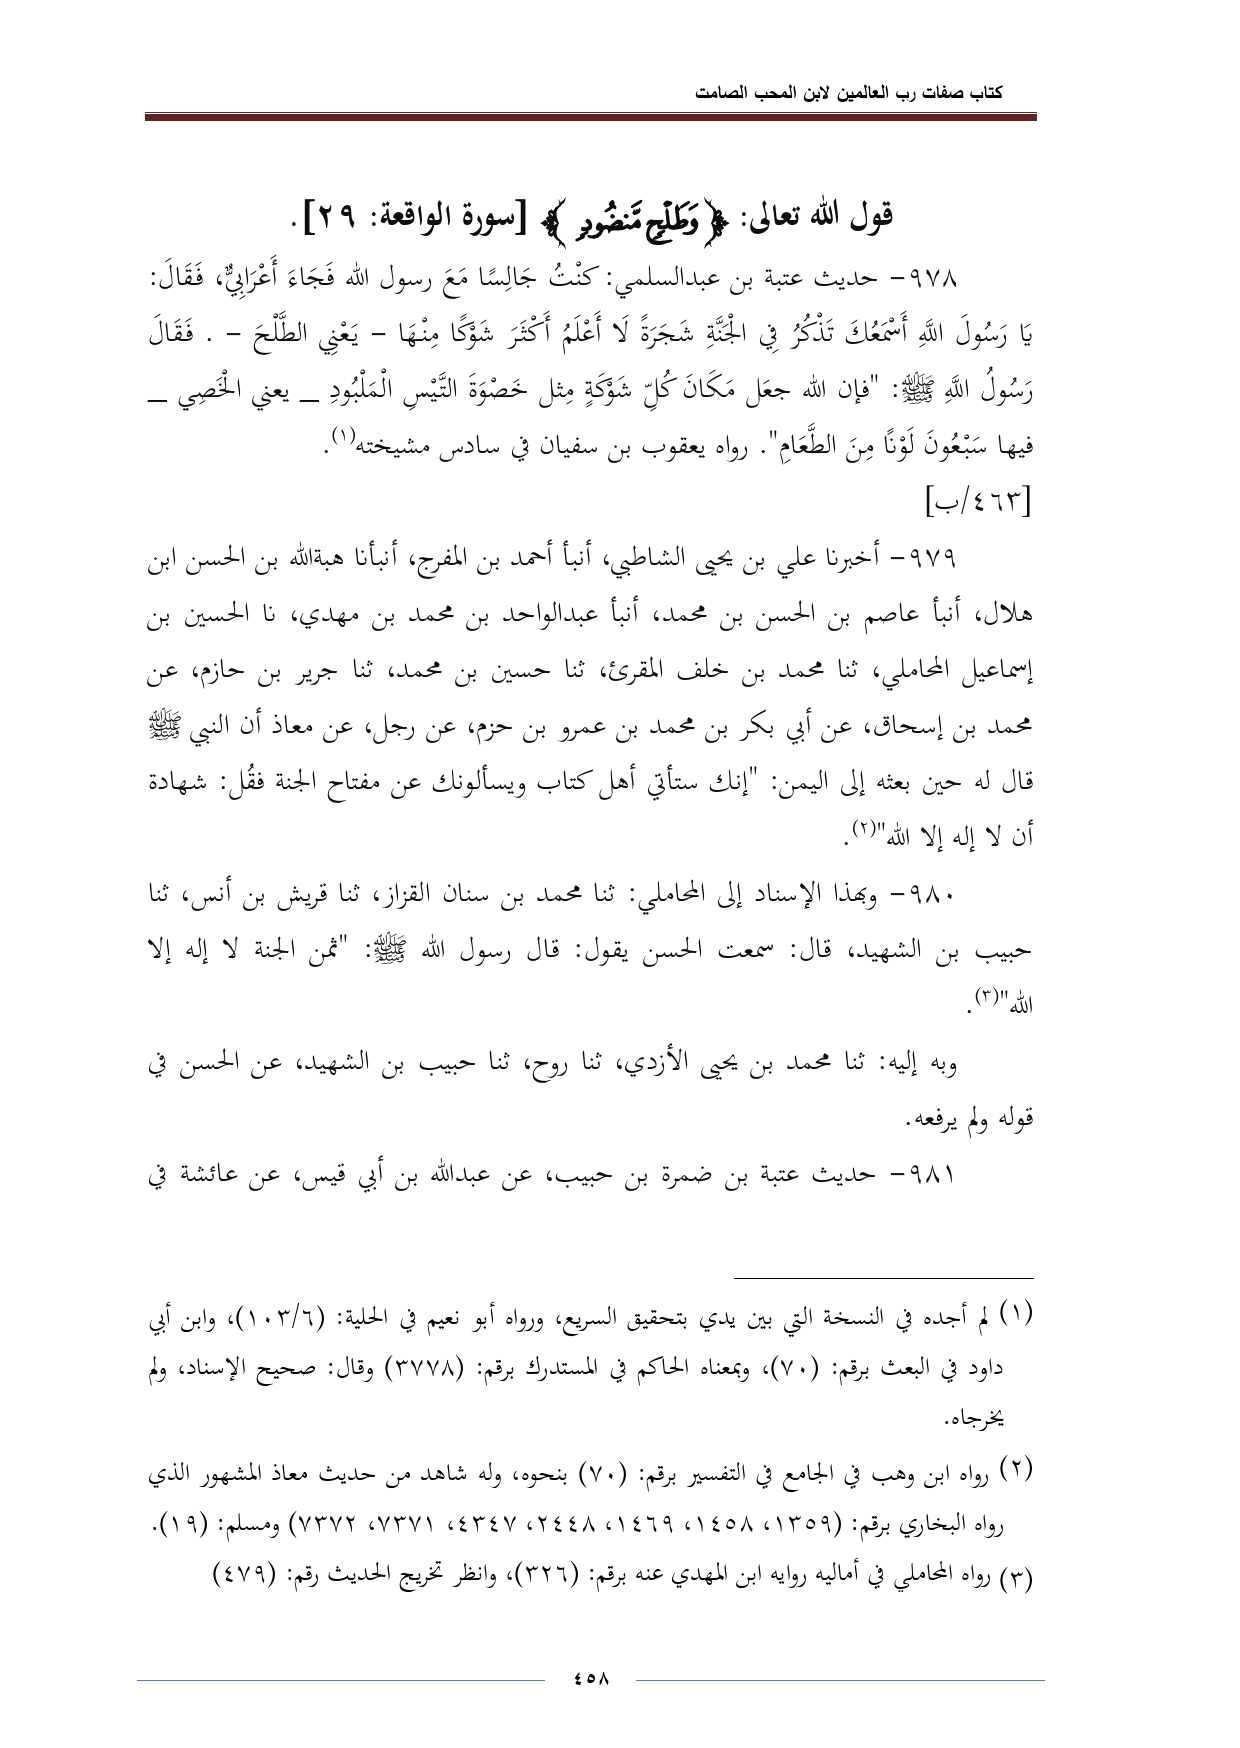 كتاب صفات رب العالمين لابن المحب الصامت
قول الله تعالى: ﴿وَطَلْحٍ مَّنضُودٍ﴾ [سورة الواقعة: ٢٩].
٩٧٨– حديث عتبة بن عبدالسلمي: كنْتُ جَالِسًا مَعَ رسول الله فَجَاءَ أَعْرَابِيٌّ، فَقَالَ:
يَا رَسُولَ اللَّهِ أَسْمَعُكَ تَذْكُرُ فِي الْجَنَّةِ شَجَرَةً لَا أَعْلَمُ أَكْثَرَ شَوْكًا مِنْهَا – يَعْنِي الطَّلْحَ – . فَقَالَ
رَسُولُ اللَّهِ ﷺ: "فإن الله جعَل مَكَانَ كُلِّ شَوْكَةٍ مِثل خَصْوَةَ التَّيْسِ الْمَلْبُودِ ــ يعني الْخَصِي ــ
فيها سَبْعُونَ لَوْنًا مِنَ الطَّعَامِ". رواه يعقوب بن سفيان في سادس مشيخته(١).
[٤٦٣/ب]
٩٧٩– أخبرنا علي بن يحيى الشاطبي، أنبأ أحمد بن المفرج، أنبأنا هبةالله بن الحسن ابن
هلال، أنبأ عاصم بن الحسن بن محمد، أنبأ عبدالواحد بن محمد بن مهدي، نا الحسين بن
إسماعيل المحاملي، ثنا محمد بن خلف المقرئ، ثنا حسين بن محمد، ثنا جرير بن حازم، عن
محمد بن إسحاق، عن أبي بكر بن محمد بن عمرو بن حزم، عن رجل، عن معاذ أن النبي ﷺ
قال له حين بعثه إلى اليمن: "إنك ستأتي أهل كتاب ويسألونك عن مفتاح الجنة فقُل: شهادة
أن لا إله إلا الله"(٢).
٩٨٠– وبهذا الإسناد إلى المحاملي: ثنا محمد بن سنان القزاز، ثنا قريش بن أنس، ثنا
حبيب بن الشهيد، قال: سمعت الحسن يقول: قال رسول الله ﷺ: "ثمن الجنة لا إله إلا
الله"(٣).
وبه إليه: ثنا محمد بن يحيى الأزدي، ثنا روح، ثنا حبيب بن الشهيد، عن الحسن في
قوله ولم يرفعه.
٩٨١– حديث عتبة بن ضمرة بن حبيب، عن عبدالله بن أبي قيس، عن عائشة في
(١) لم أجده في النسخة التي بين يدي بتحقيق السريع، ورواه أبو نعيم في الحلية: (١٠٣/٦)، وابن أبي
داود في البعث برقم: (٧٠)، وبمعناه الحاكم في المستدرك برقم: (٣٧٧٨) وقال: صحيح الإسناد، ولم
يخرجاه.
(٢) رواه ابن وهب في الجامع في التفسير برقم: (٧٠) بنحوه، وله شاهد من حديث معاذ المشهور الذي
رواه البخاري برقم: (١٣٥٩، ١٤٥٨، ١٤٦٩، ٢٤٤٨، ٤٣٤٧، ٧٣٧١، ٧٣٧٢) ومسلم: (١٩).
(٣) رواه المحاملي في أماليه روايه ابن المهدي عنه برقم: (٣٢٦)، وانظر تخريج الحديث رقم: (٤٧٩)
٤٥٨